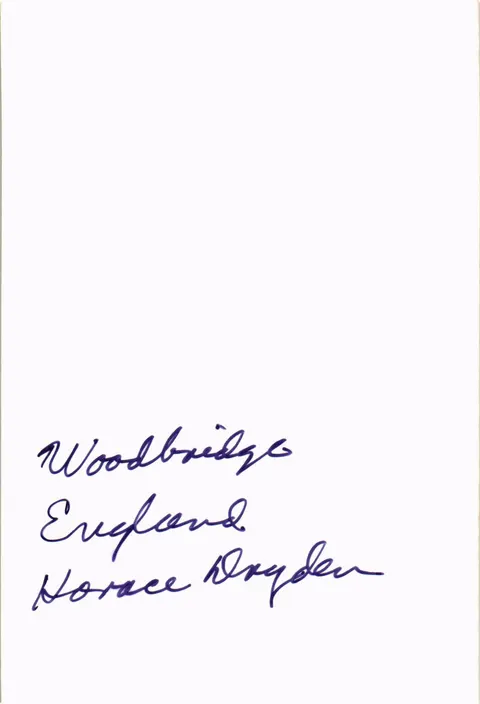 Woodbridge
England
Horace Dryden